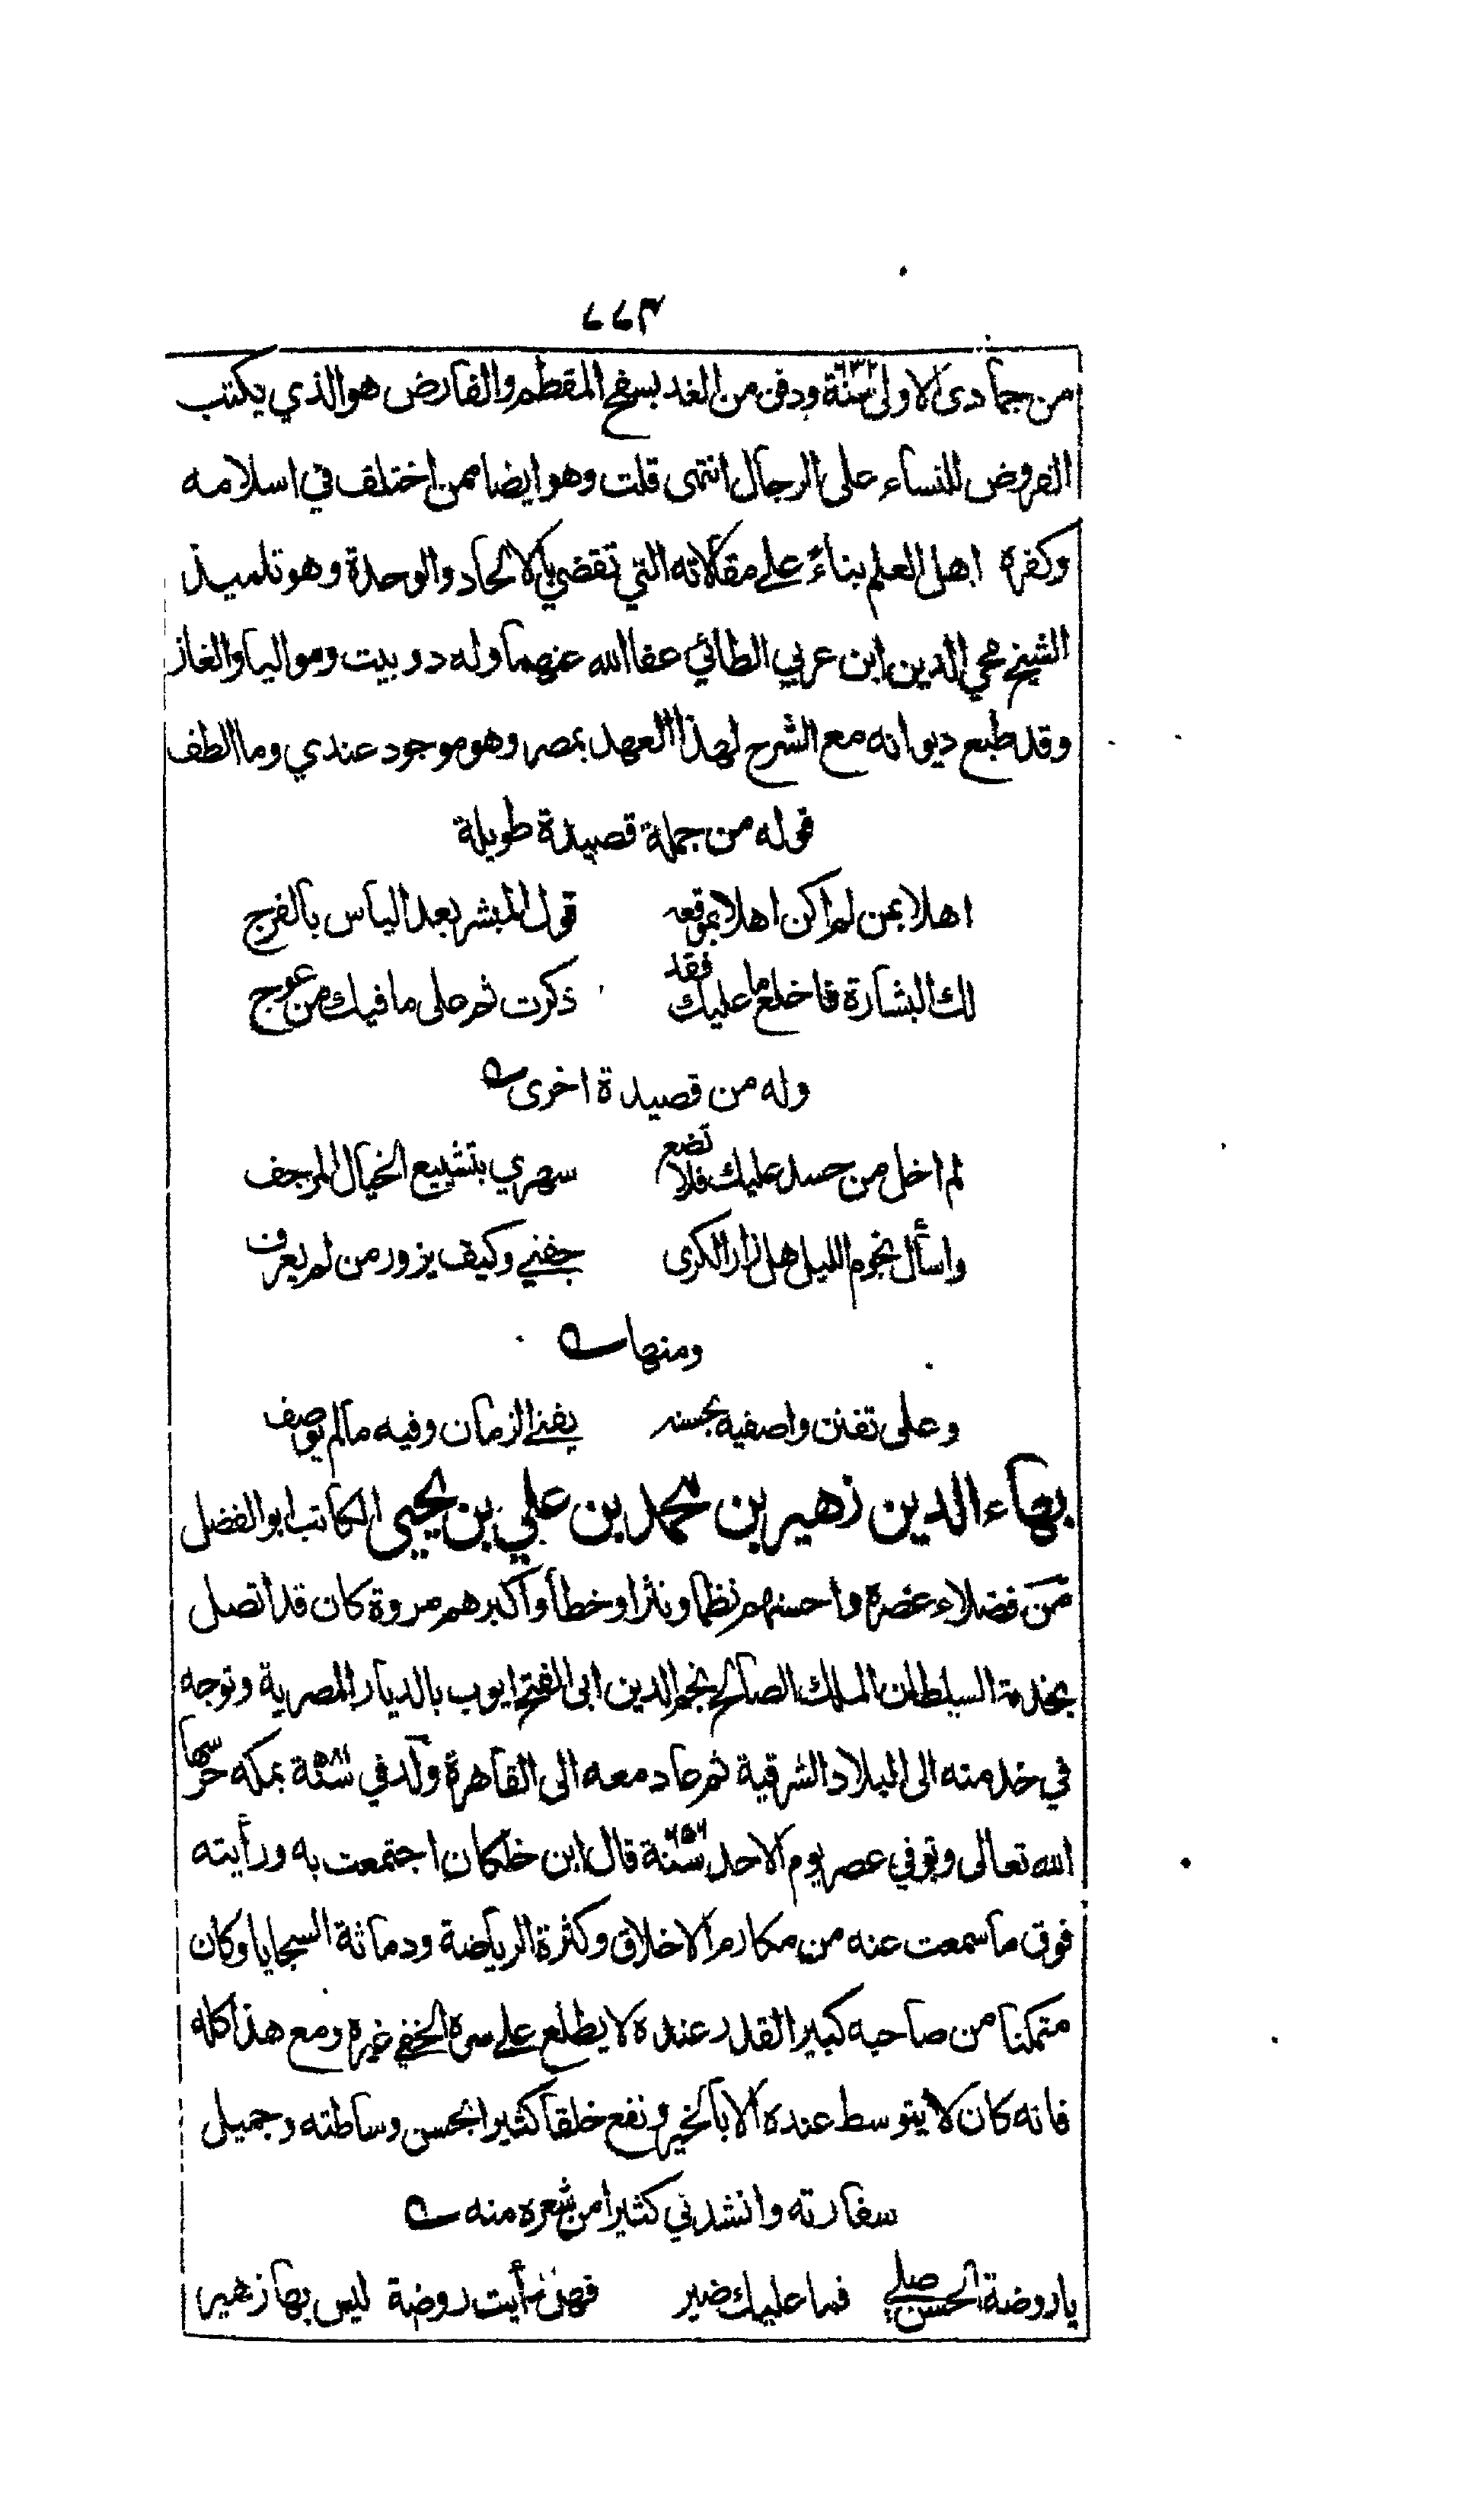 ٦٦٣
من جمادى الاولى سنة ٦٣٢ ودفن من الغد بسفح المقطم والفارض هو الذي يكتب
الفروض للنساء على الرجال انتهى قلت وهو ايضا ممن اختلف في اسلامه
وكفره اهل العلم بناءً على مقالاته التي تقضي بالالحاد والوحدة وهو تلميذ
الشيخ محي الدين ابن عربي الطائي عفا الله عنهما وله دو بيت ومواليا والغاز
وقد طبع ديوانه مع الشرح لهذا العهد بمصر وهو موجود عندي وما الطف
قوله من جملة قصيدة طويلة
اهلا بمن لم اكن اهلا بموقعه قول المبشر بعد الياس بالفرج
لك البشارة فاخلع ما عليك فقد ذكرت ثم على ما فيك من عوج
وله من قصيدة اخرى
لم اخل من حسد عليك فلا تضع سهري بتشييع الخيال المرجف
واسأل نجوم الليل هل زار الكرى جفني وكيف يزور من لم يعرف
ومنها
وعلى تفنن واصفيه بحسنه يفنى الزمان وفيه مالم يوصف
بهاء الدين زهير بن محمد بن علي بن يحيى الكاتب ابو الفضل
من فضلاء عصره واحسنهم نظما ونثرا وخطأ واكبرهم مروة كان قد اتصل
بخدمة السلطان الملك الصالح نجم الدين ابى الفتح ايوب بالديار المصرية وتوجه
في خدمته الى البلاد الشرقية ثم عاد معه الى القاهرة ولد في سنة بمكه حرسها
الله تعالى وتوفي عصر يوم الاحد سنة ٦٥٦ قال ابن خلكان اجتمعت به ورأيته
فوق ما سمعت عنه من مكارم الاخلاق وكثرة الرياضة ودماثة السجايا وكان
متمكنا من صاحبه كبير القدر عنده لا يطلع على سره الخفي غيره ومع هذا كله
فانه كان لا يتوسط عنده الا بالخير ونفع خلقا كثيرا بحسن وساطته وجميل
سفارته وانشدني كثيرا من شعره منه
يا روضة الحسن صلي فما عليك ضير فهل رأيت روضة ليس بها زهير